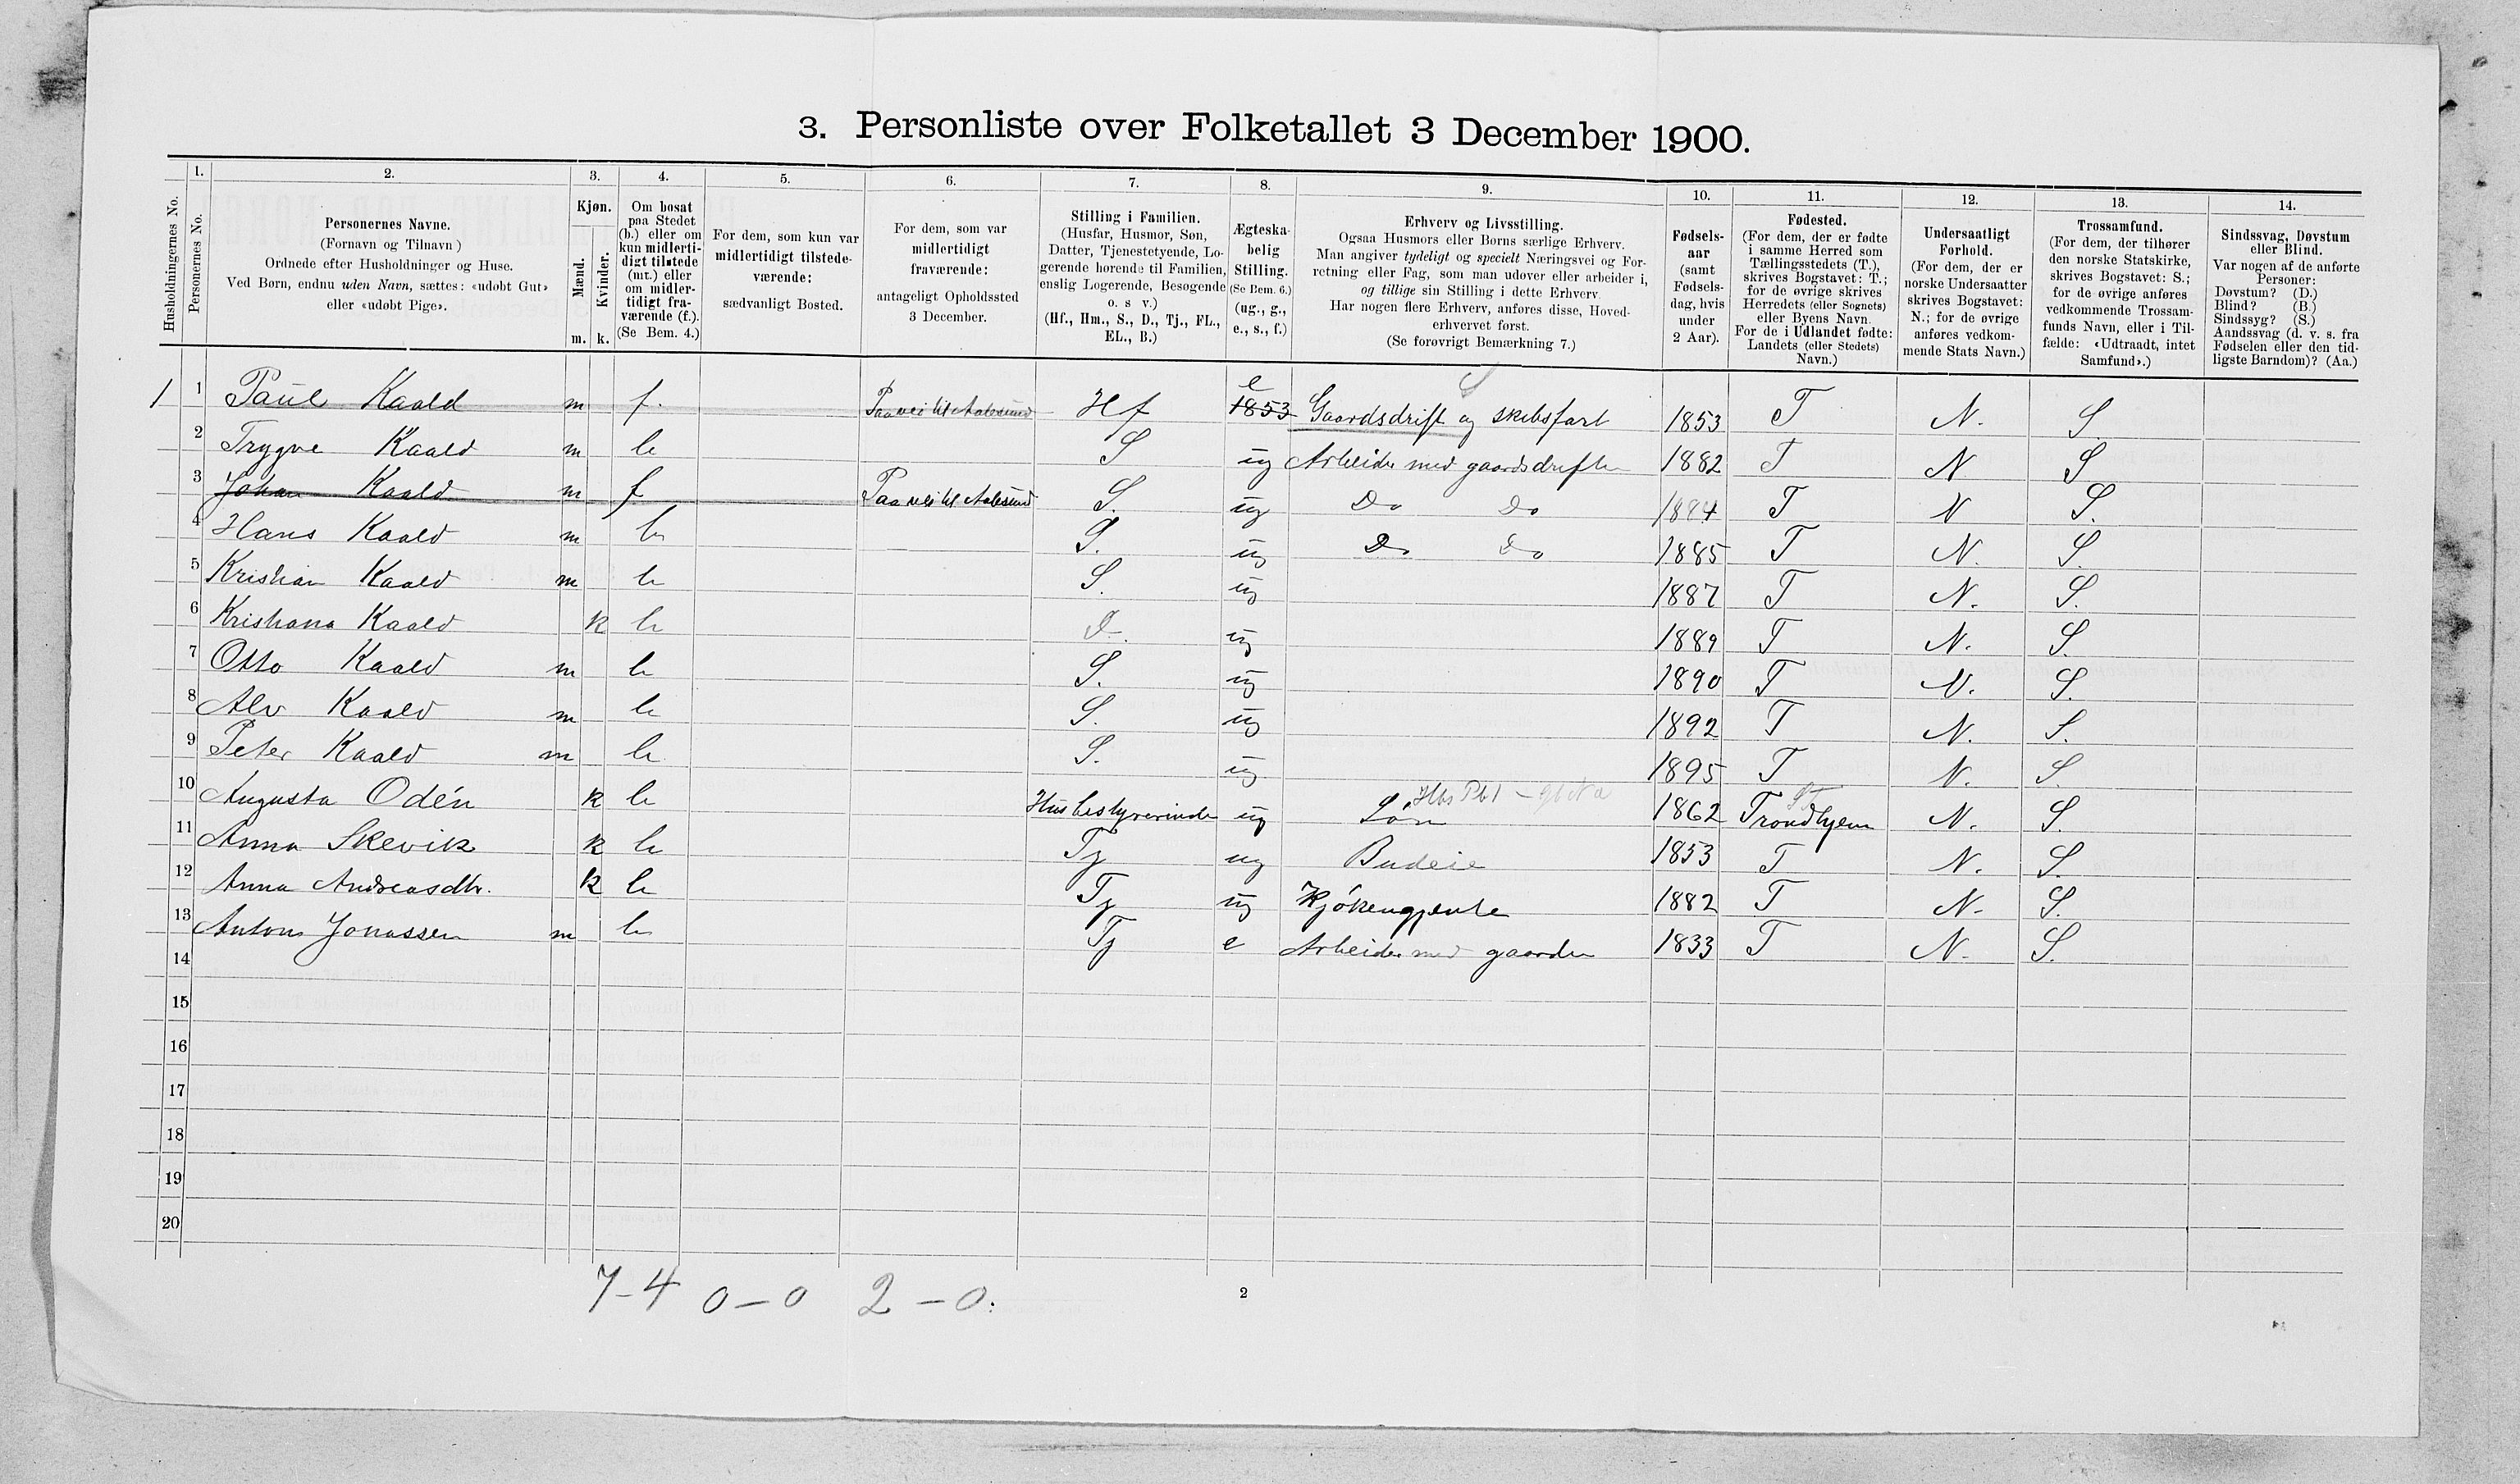 3. Personliste over Folketallet 3 December 1900.
1. 2. 3. 4. 5. 6. 7. 8. 9. 10. 11. 12. 13. 14.
Husholdningernes No.
Personernes No.
Personernes Navne.
(Fornavn og Tilnavn)
Ordnede efter Husholdninger og Huse.
Ved Børn, endnu uden Navn, sættes: «udøbt Gut»
eller «udøbt Pige».
Kjøn.
Mænd.
Kvinder.
m. k.
Om bosat
paa Stedet
(b.) eller om
kun midlerti-
digt tilstede
(mt.) eller
om midler-
tidigt fra-
værende (f.).
(Se Bem. 4.)
For dem, som kun var
midlertidigt tilstede-
værende:
sædvanligt Bosted.
For dem, som var
midlertidigt
fraværende:
antageligt Opholdssted
3 December.
Stilling i Familien.
(Husfar, Husmor, Søn,
Datter, Tjenestetyende, Lo-
gerende hørende til Familien,
enslig Logerende, Besøgende
o. s v.)
(Hf., Hm., S., D., Tj., FL.,
EL., B.)
Ægteska-
belig
Stilling.
(Se Bem. 6.)
(ug., g.,
e., s., f.)
Erhverv og Livsstilling.
Ogsaa Husmors eller Børns særlige Erhverv.
Man angiver tydeligt og specielt Næringsvei og For-
retning eller Fag, som man udøver eller arbeider i,
og tillige sin Stilling i dette Erhverv.
Har nogen flere Erhverv, anføres disse, Hoved-
erhvervet først.
(Se forøvrigt Bemærkning 7.)
Fødsels-
aar
(samt
Fødsels-
dag, hvis
under
2 Aar).
Fødested.
(For dem, der er fødte
i samme Herred som
Tællingsstedets (T.),
skrives Bogstavet: T.;
for de øvrige skrives
Herredets (eller Sognets)
eller Byens Navn.
For de i Udlandet fødte:
Landets (eller Stedets)
Navn.)
Undersaatligt
Forhold.
(For dem, der er
norske Undersaatter
skrives Bogstavet:
N.; for de øvrige
anføres vedkom-
mende Stats Navn.)
Trossamfund.
(For dem, der tilhører
den norske Statskirke,
skrives Bogstavet: S.;
for de øvrige anføres
vedkommende Trossam-
funds Navn, eller i Til-
fælde: «Udtraadt, intet
Samfund».)
Sindssvag, Døvstum
eller Blind.
Var nogen af de anførte
Personer:
Døvstum? (D.)
Blind? (B.)
Sindssyg? (S.)
Aandssvag (d. v. s. fra
Fødselen eller den tid-
ligste Barndom)? (Aa.)
1 1 Paul Kaald m f. Paa vei til Aalesund Hf e 1853 Gaardsdrift og skibsfart 1853 T N. S.
2 Trygve Kaald m b S ug Arbeider med gaardsdriften 1882 T N S
3 Johan Kaald m f Paa vei til Aalesund S. ug Do Do 1884 T N S.
4 Hans Kaald m b S. ug Do Do 1885 T N. S.
5 Kristian Kaald m b S. ug 1887 T N. S.
6 Kristiana Kaald k b D. ug 1889 T N. S.
7 Otto Kaald m b S. ug 1890 T N. S.
8 Alv Kaald m b S. ug 1892 T N. S.
9 Peter Kaald m b S. ug 1895 T N. S.
10 Augusta Odén k b Husbestyrerinde ug Løn 1862 Trondhjem N. S.
11 Anna Skevik k b Tj ug Budeie 1853 T N. S.
12 Anna Andreasdtr. k b Tj ug Kjøkengjente 1882 T N. S.
13 Anton Jonassen m b Tj e Arbeider med gaarden 1833 T N. S.
14
15
16
17
18
19
20
7-4 0-0 2-0.
2